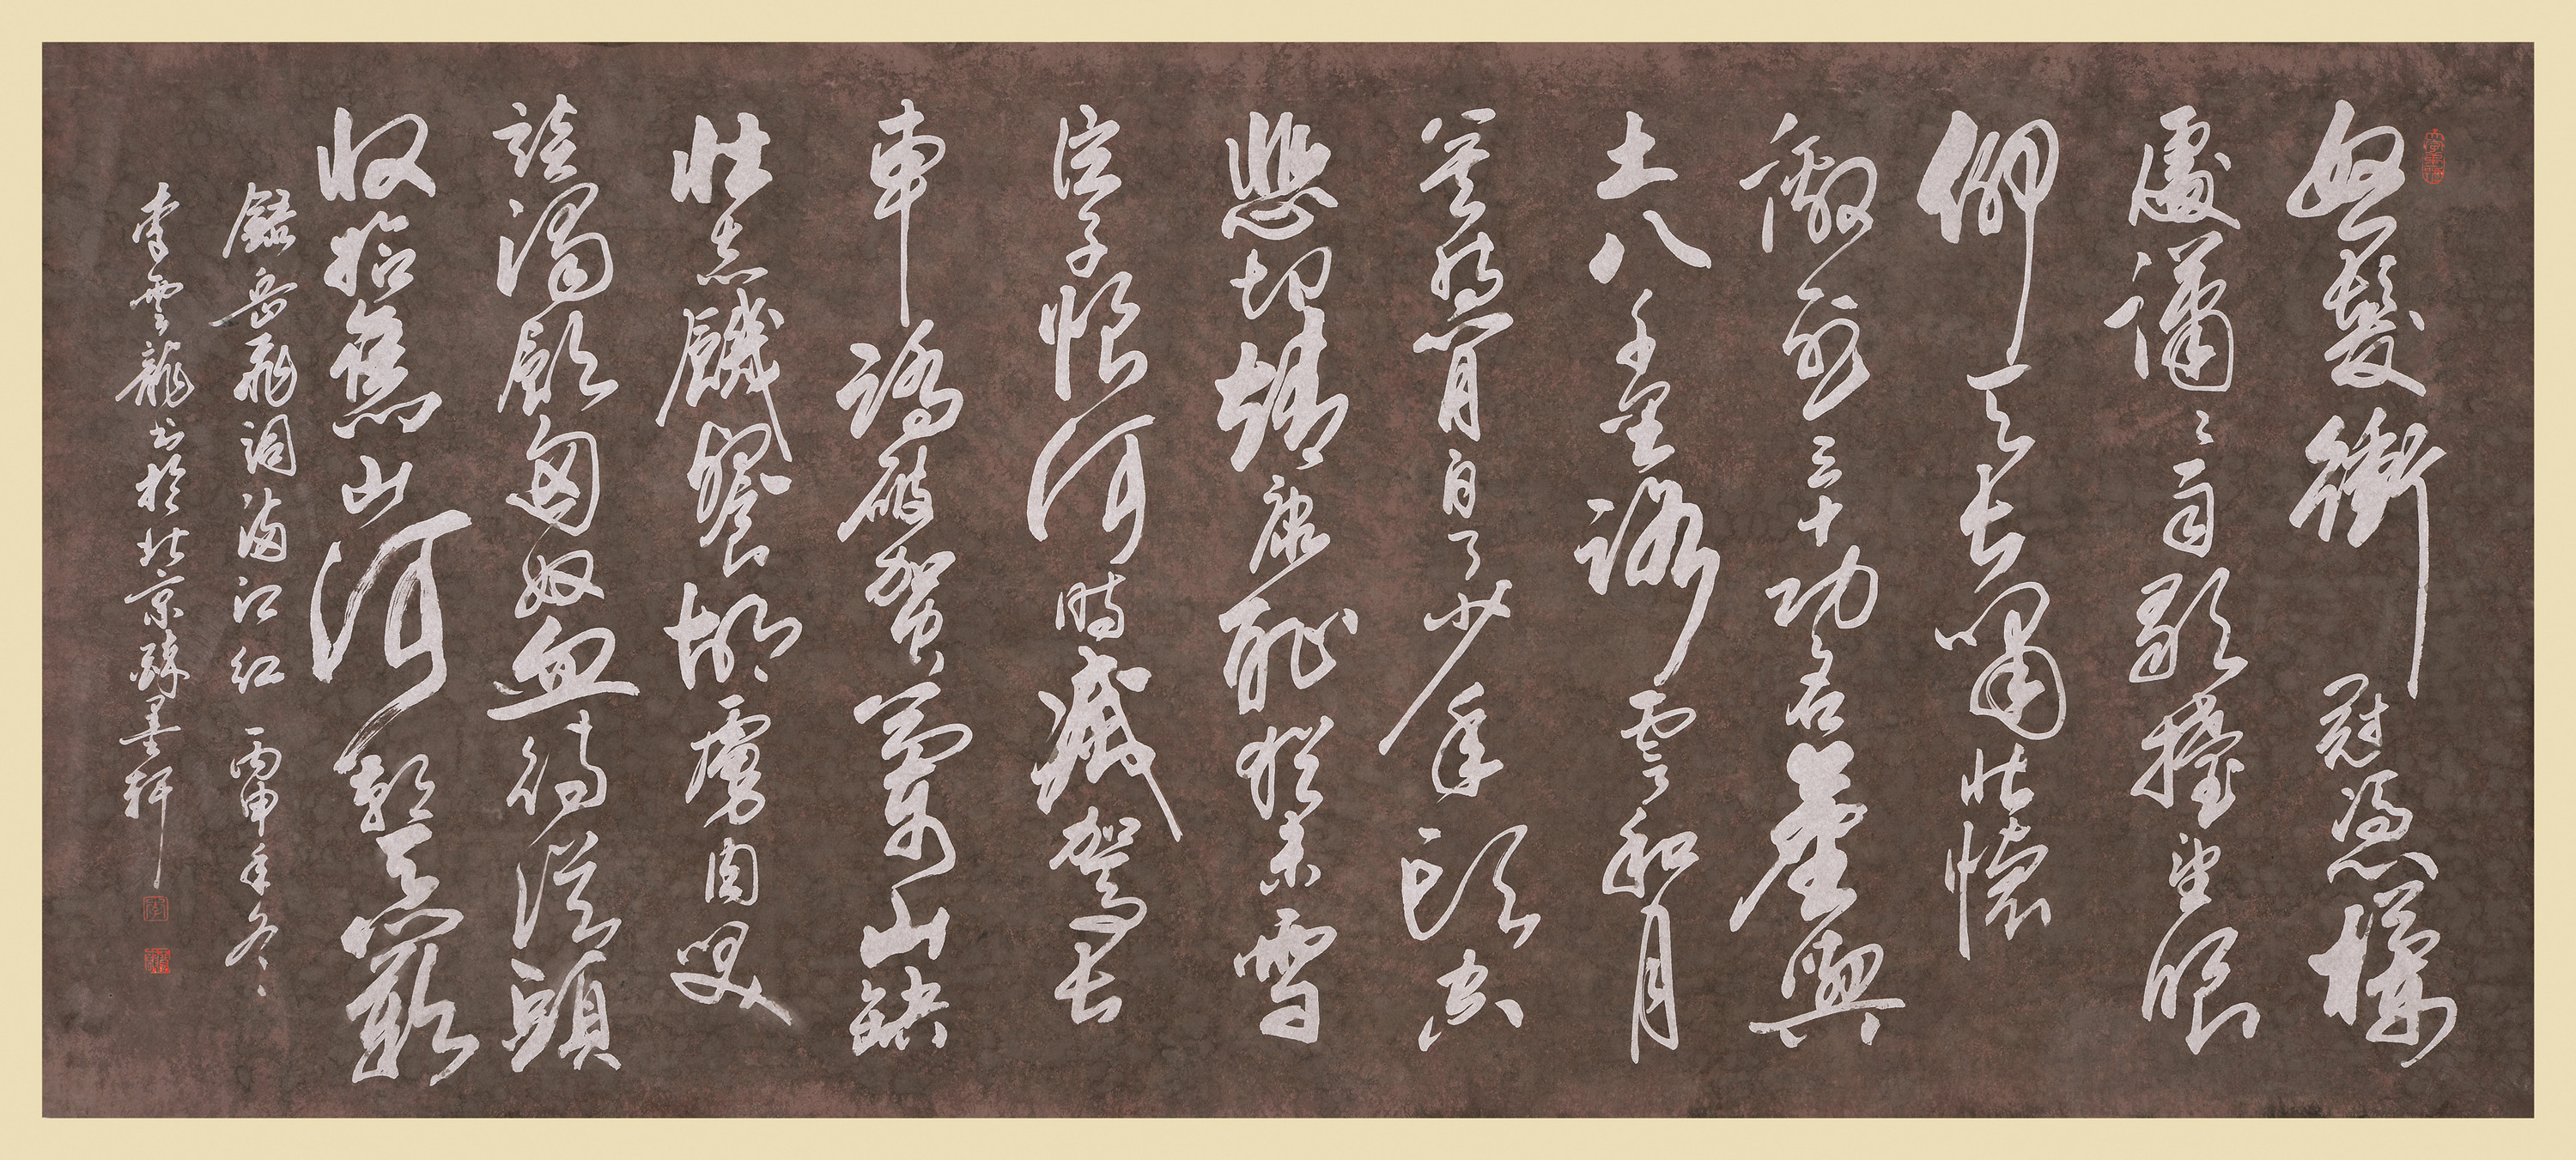 怒髮衝冠憑欄
處瀟〻雨歇擡望眼
仰天長嘯壯懷
激烈三十功名塵與
土八千里路雲和月
莫等閒白了少年頭空
悲切靖康恥猶未雪
臣子恨何時滅駕長
車踏破賀蘭山缺
壯志饑餐胡虜肉笑
談渴飲匈奴血待從頭
收拾舊山河朝天闕
錄岳飛詞滿江紅 丙申年冬
李雲龍書於北京墨軒